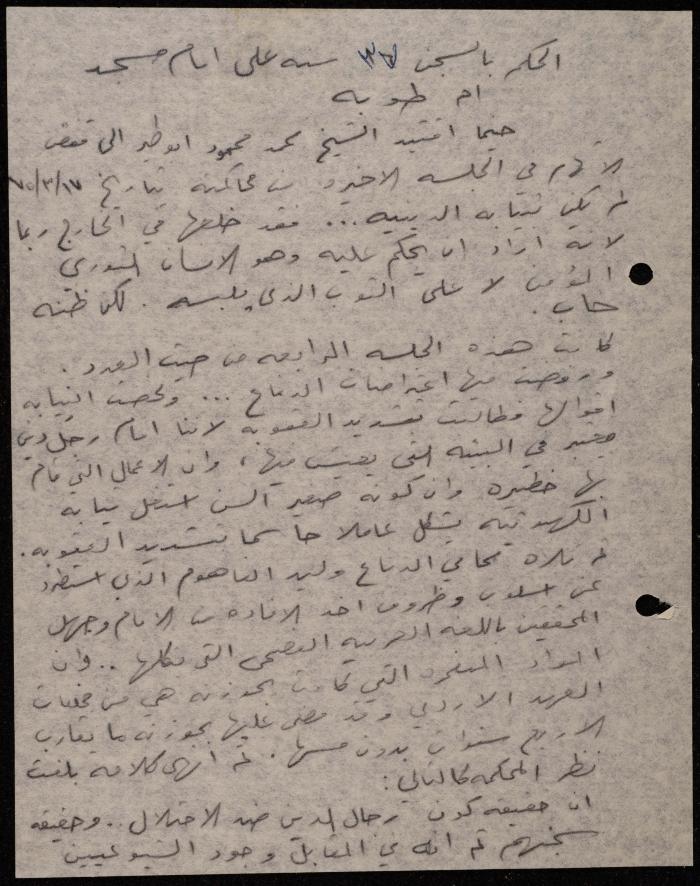 الحكم بالسجن ٣٧ سنه على امام مسجد
ام طوبه
حينما اقتيد الشيخ محمد محمود ابو طير الى قفص
الاتهام في الجلسه الاخيره من محاكمته بتاريخ ١٧/٣/٧٥
لم يكن بثيابه الدينيه... فقد خلعها في الخارج ربما
لانه اراد ان يحكم عليه وهو الانسان الثوري
المؤمن لا على الثوب الذي يلبسه. لكن ظنه
خاب.
كانت هذه الجلسه الرابعه من حيث العدد.
ورفضت فيها اعتراضات الدفاع... ولخصت النيابه
اقوالها وطالبت بتشديد العقوبه لاننا امام رجل دين
معتبر في البيئه التي يعيش فيها، وان الاعمال التي قام
بها خطيره وان كونه صغير السن استغل ثيابه
الكهنوتيه يشكل عاملا حاسما لتشديد العقوبه.
ثم تلاه محامي الدفاع وليد الفاهوم الذي استطرد
عن اسلوب وظروف اخذ الافاده من الامام وجهل
المحققين باللغه العربيه الفصحى التي تكلمها.. وان
المواد المتفجره التي كانت بحوزته هي من مخلفات
العهد الاردني وقد مضى عليها بحوزته ما يقارب
الاربع سنوات بدون مسها. ثم انهى كلامه بلفت
نظر المحكمه كالتالي:
ان حقيقة كون رجال الدين ضد الاحتلال.. وحقيقه
سجنهم ثم انه في المقابل وجود الشيوعيين